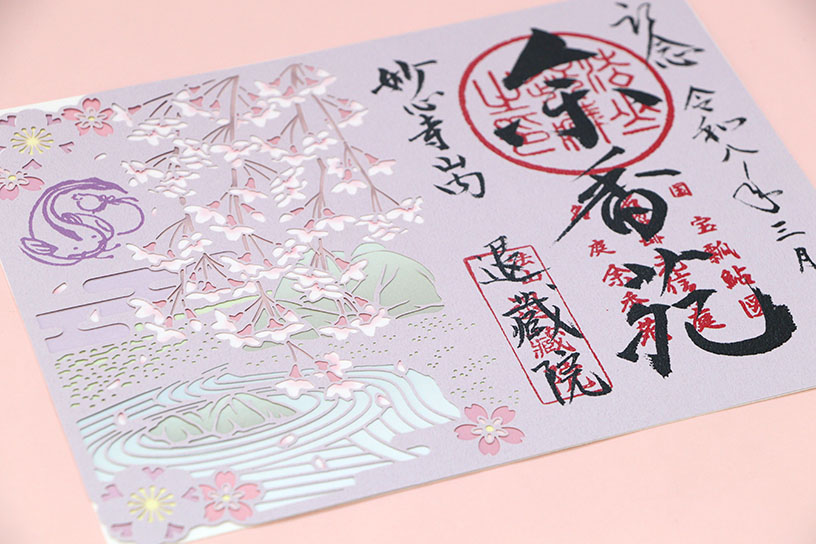 記念
令和八年三月
余香苑
国宝瓢鮎図
元信庭
名庭余香苑
妙心寺山内
退蔵院